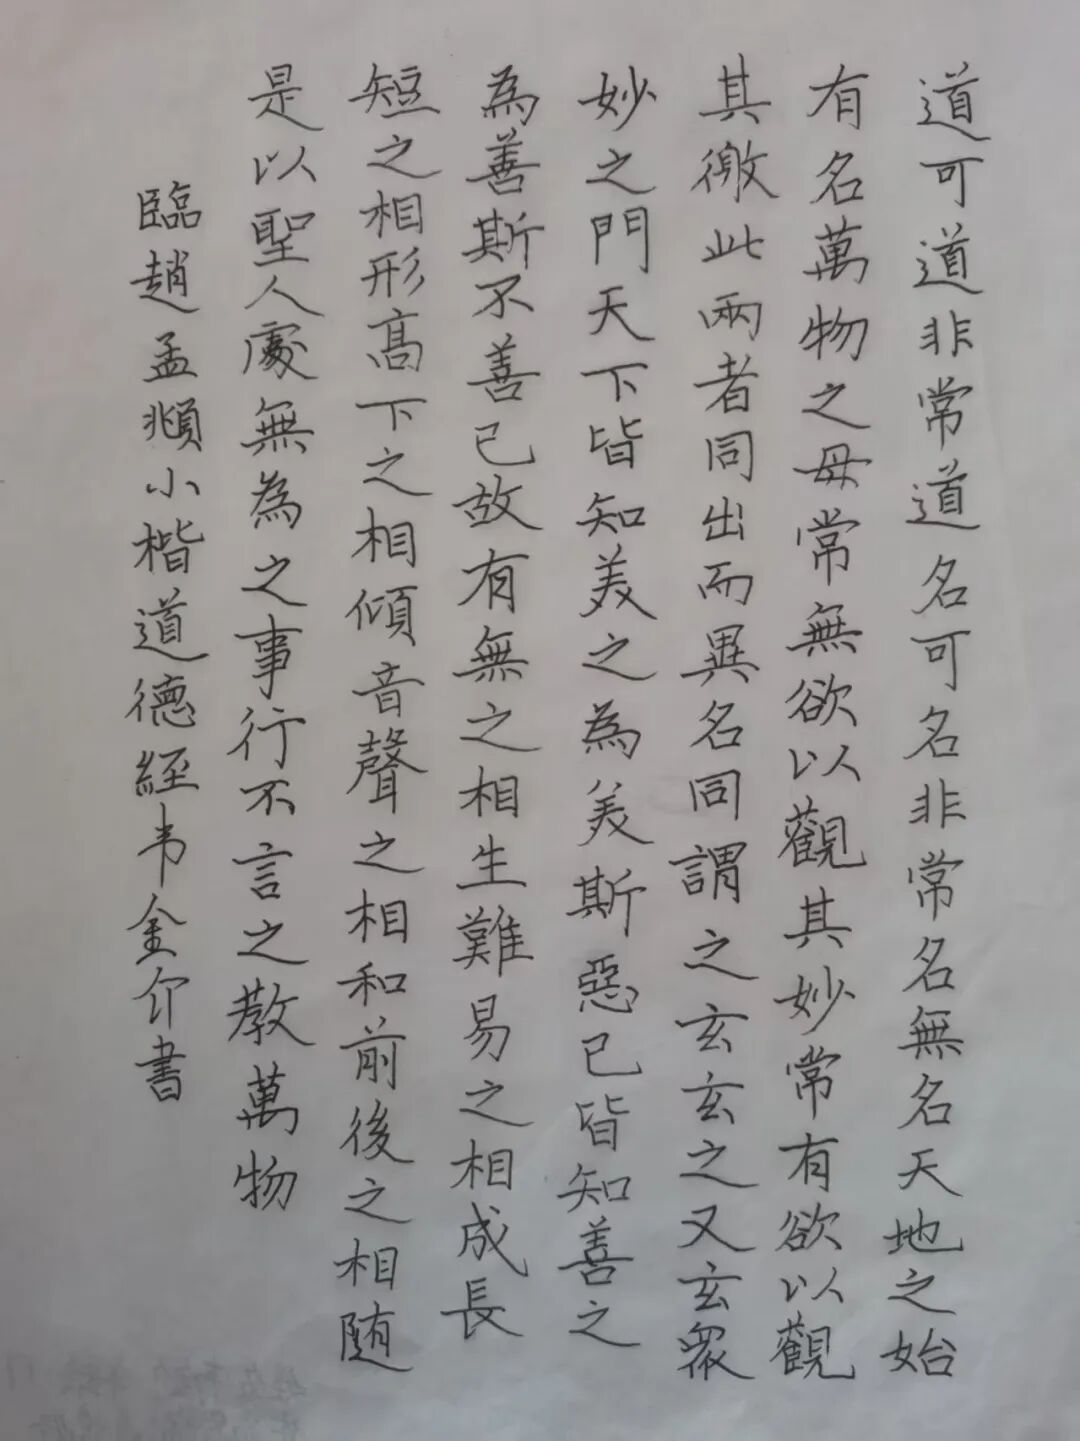 道可道非常道名可名非常名無名天地之始
有名萬物之母常無欲以觀其妙常有欲以觀
其徼此兩者同出而異名同謂之玄玄之又玄眾
妙之門天下皆知美之為美斯惡已皆知善之
為善斯不善已故有無之相生難易之相成長
短之相形高下之相傾音聲之相和前後之相随
是以聖人處無為之事行不言之教萬物
臨趙孟頫小楷道德經韦金介書